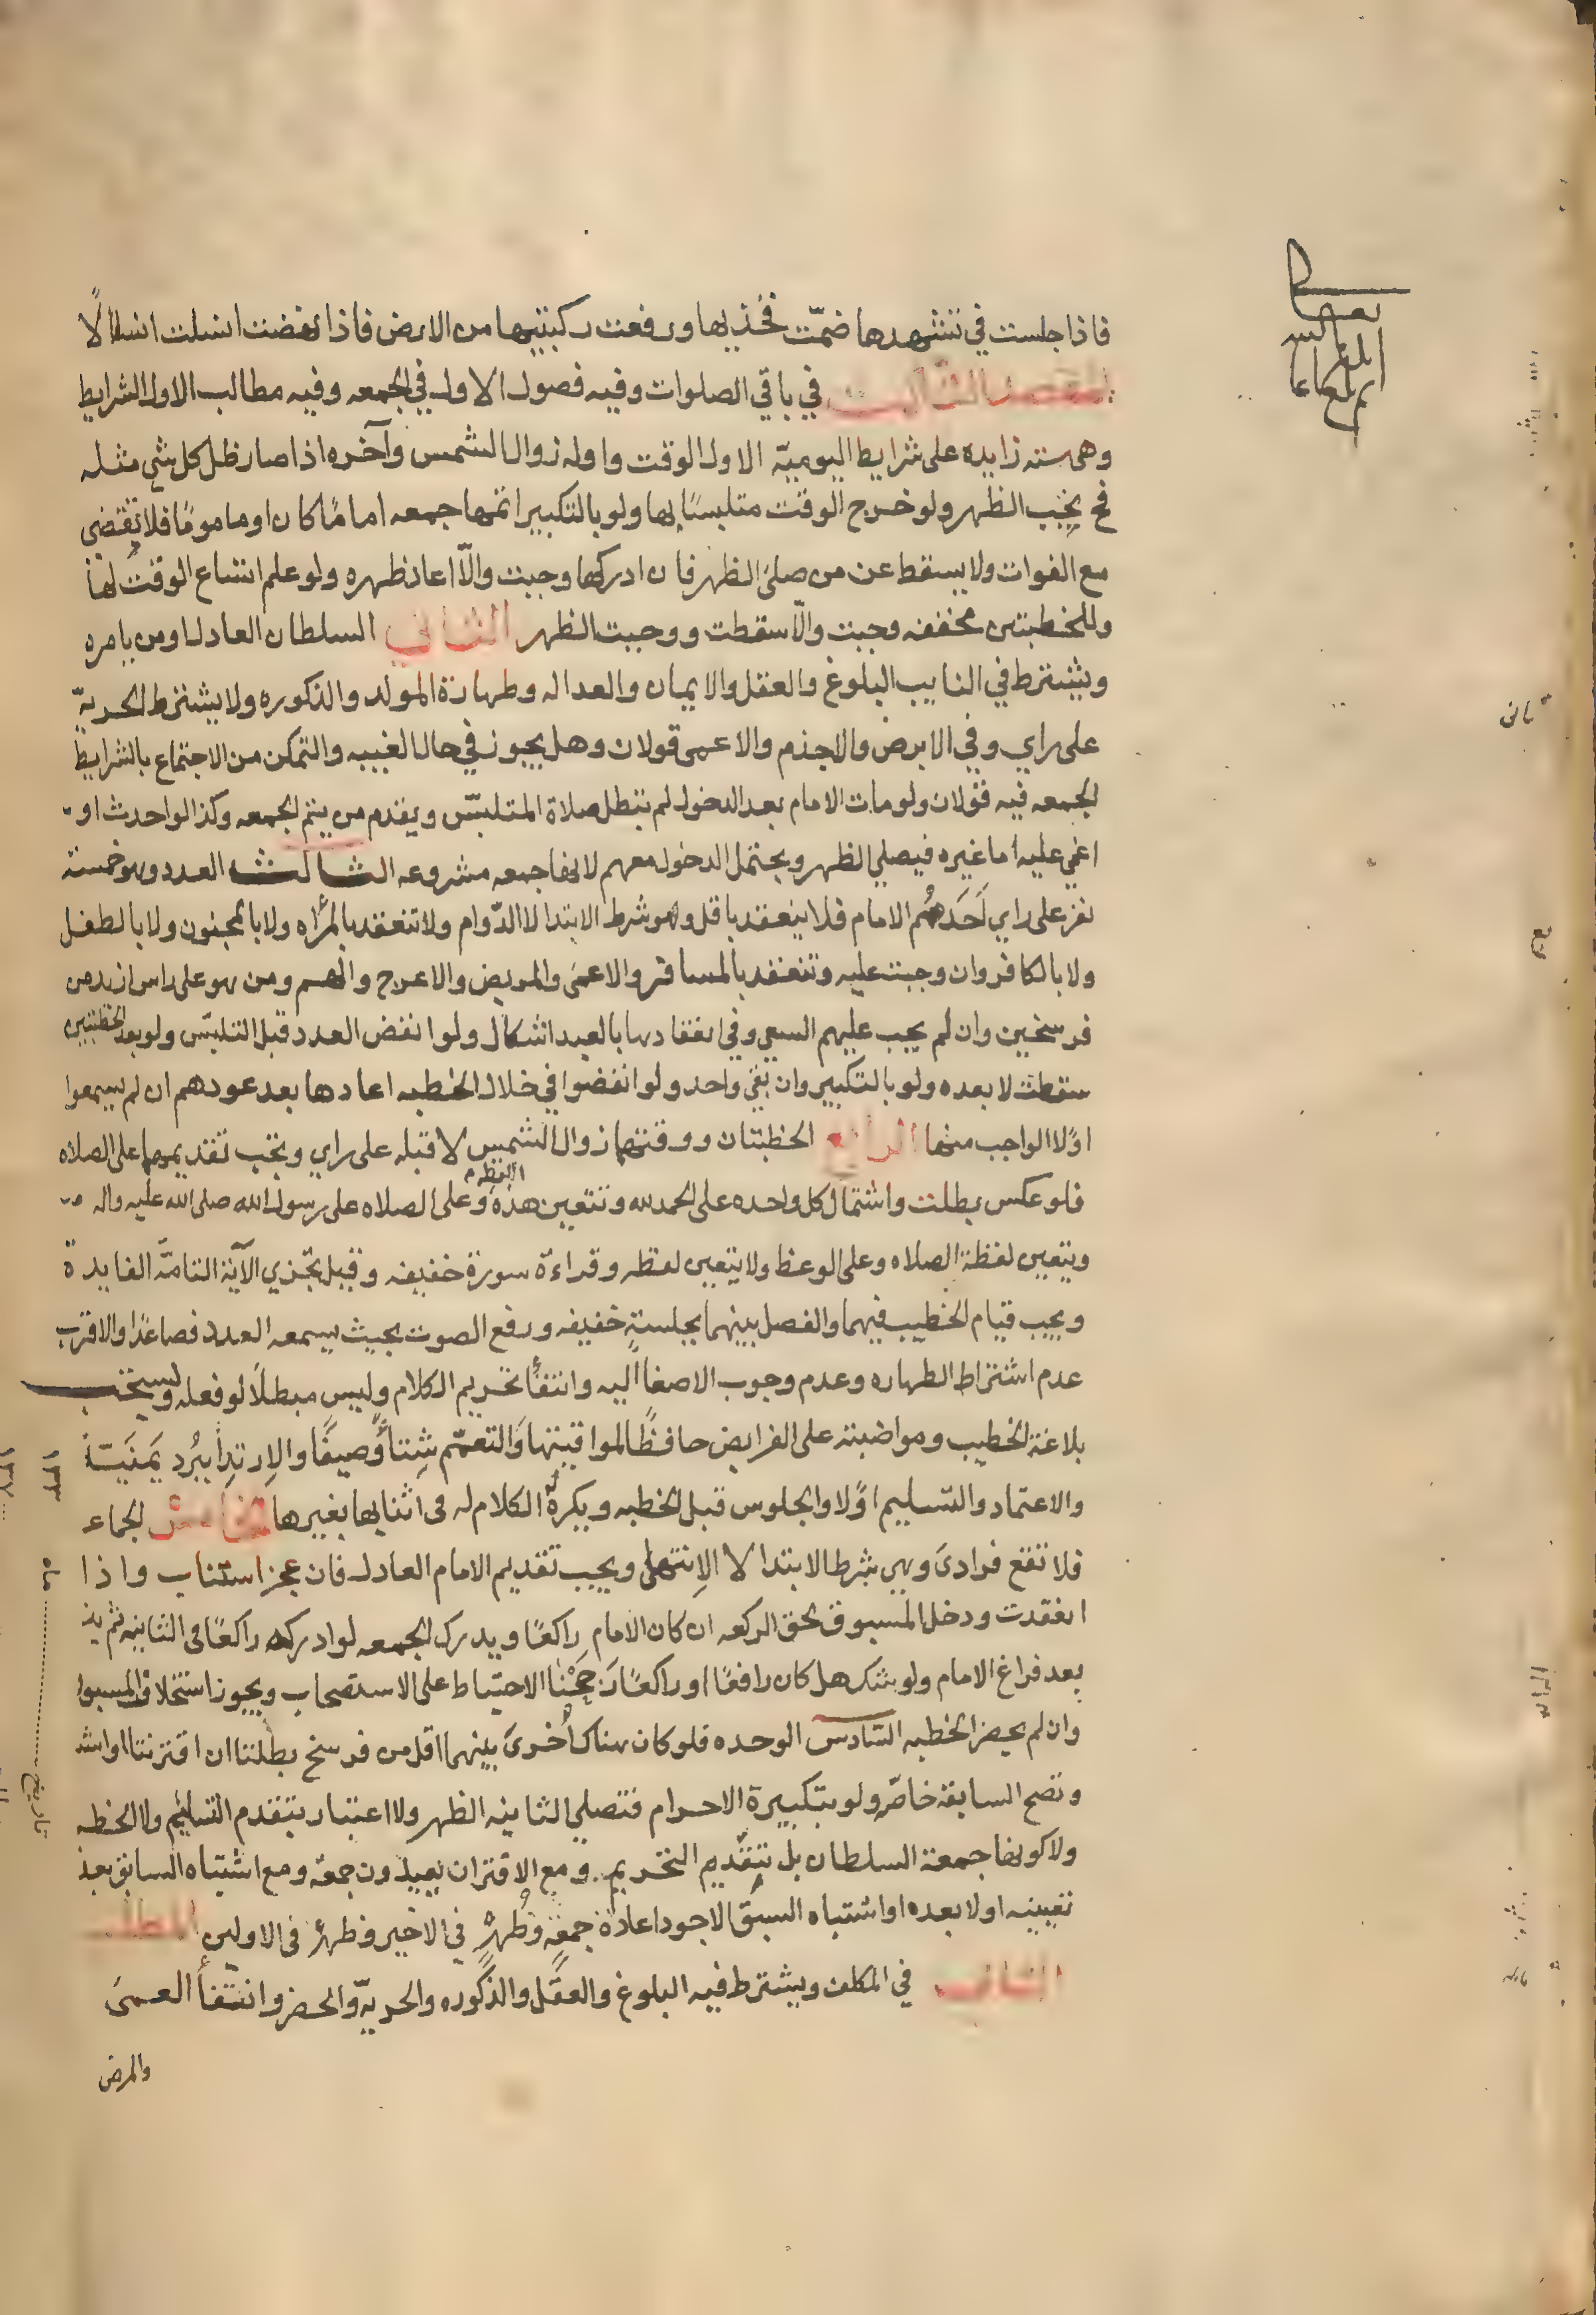 فاذا جلست في تشهدها ضمّت فخذيها ورفعت ركبتيها من الارض فاذا نهضت انسلت انسلالًا
المقصد الثالث في باقي الصلوات وفيه فصول الاول في الجمعه وفيه مطالب الاول الشرايط
وهي سته زايده على شرايط اليوميّه الاول الوقت واوله زوال الشمس وآخره اذا صار ظل كل شي مثله
فح يجب الظهر ولو خرج الوقت متلبسًا بها ولو بالتكبير اتمها جمعه امامًا كان او مامومًا فلا تقضى
مع الفوات ولا يسقط عن من صلى الظهر فان ادركها وجبت والّا اعاد ظهره ولو علم اتساع الوقت لها
وللخطبتين مخففه وجبت والّا سقطت ووجبت الظهر الثاني السلطان العادل او من يامره
ويشترط في النايب البلوغ والعقل والايمان والعداله وطهارة المولد والذكوره ولا يشترط الحريّه
على راي وفي الابرض والاجذم والاعمى قولان وهل يجوز في حال الغيبه والتمكن من الاجتماع بالشرايط
الجمعه فيه قولان ولو مات الامام بعد الدخول لم تبطل صلاة المتلبّس ويقدم من يتم الجمعه وكذا لو احدث او
اغمي عليه اما غيره فيصلي الظهر ويحتمل الدخول معهم لانها جمعه مشروعه الثالث العدد وهو خمسة
نفر على راي اَحَدهُم الامام فلا ينعقد باقل وهو شرط الابتدا لا الدّوام ولا تنعقد بالمرأه ولا بالمجنون ولا بالطفل
ولا بالكافر وان وجبت عليه وتنعقد بالمسافر والاعمىَ والمريض والاعرج والهم ومن هو على راس ازيد من
فرسخين وان لم يجب عليهم السعي وفي انعقادها بالعبد اشكال ولو انفض العدد قبل التلبّس ولو بعد الخطبتين
سقطت لا بعده ولو بالتكبير وان بقي واحد ولو انفضوا في خلال الخطبه اعادها بعد عودهم ان لم يسمعوا
اوّلا الواجب منها الرابع الخطبتان ووقتهما زوال الشمس لا قبله على راي ويجب تقديمهما على الصلاه
فلو عكس بطلت واشتمال كل واحده على الحمد لله وتتعين هذه اللفظه وعلى الصلاه على رسول الله صلى الله عليه واله
ويتعين لفظة الصلاه وعلى الوعظ ولا يتعين لفظه وقراءة سورة خفيفه وقيل تجزي الآية التامّة الفايدة
ويجب قيام الخطيب فيهما والفصل بينهما بجلسةٍ خفيفه ورفع الصوت بحيث يسمعه العدد فصاعدًا والاقرب
عدم اشتراط الطهاره وعدم وجوب الاصغا اليه وانتفأ تحريم الكلام وليس مبطلًا لو فعله ويستحب
بلاغة الخطيب ومواضبته على الفرايض حافظًا لمواقيتها والتعمّم شِتاً وصيفًا والارتدا ببُرد يَمَنيّة
والاعتماد والتسليم اوّلا والجلوس قبل الخطبه ويكره الكلام له في اثنايها بغيرها الخامس الجماعه
فلا تقع فرادىَ وهي شرط الابتدا لا الانتهاى ويجب تقديم الامام العادل فان عجز استناب واذا
انعقدت ودخل المسبوق لحق الركعه ان كان الامام راكعًا ويدرك الجمعه لو ادركه راكعًا في الثانيه ثم يتم
بعد فراغ الامام ولو شك هل كان رافعًا او راكعًا رَجَّحْنا الاحتياط على الاستصحاب ويجوز استخلاف المسبوق
وان لم يحضر الخطبه السّادس الوحده فلو كان هناك أخرىَ بينهما اقل من فرسخ بطلتا ان اقترنتا او اشتبه
وتصح السابقة خاصّه ولو بتكبيرة الاحرام فتصلي الثانيه الظهر ولا اعتبار بتقدم التسليم ولا الخطبه
ولا كونها جمعة السلطان بل بتقديم التحريم ومع الاقتران يعيدون جمعة ومع اشتباه السابق بعد
تعيينه اولا بعده او اشتباه السبق الاجود اعادة جمعةٍ وظهرٍ في الاخير وظهرٍ في الاولين المطلب
الثاني في المكلف ويشترط فيه البلوغ والعقل والذكوره والحريّه والحضر وانتفأ العمىَ
والمرض